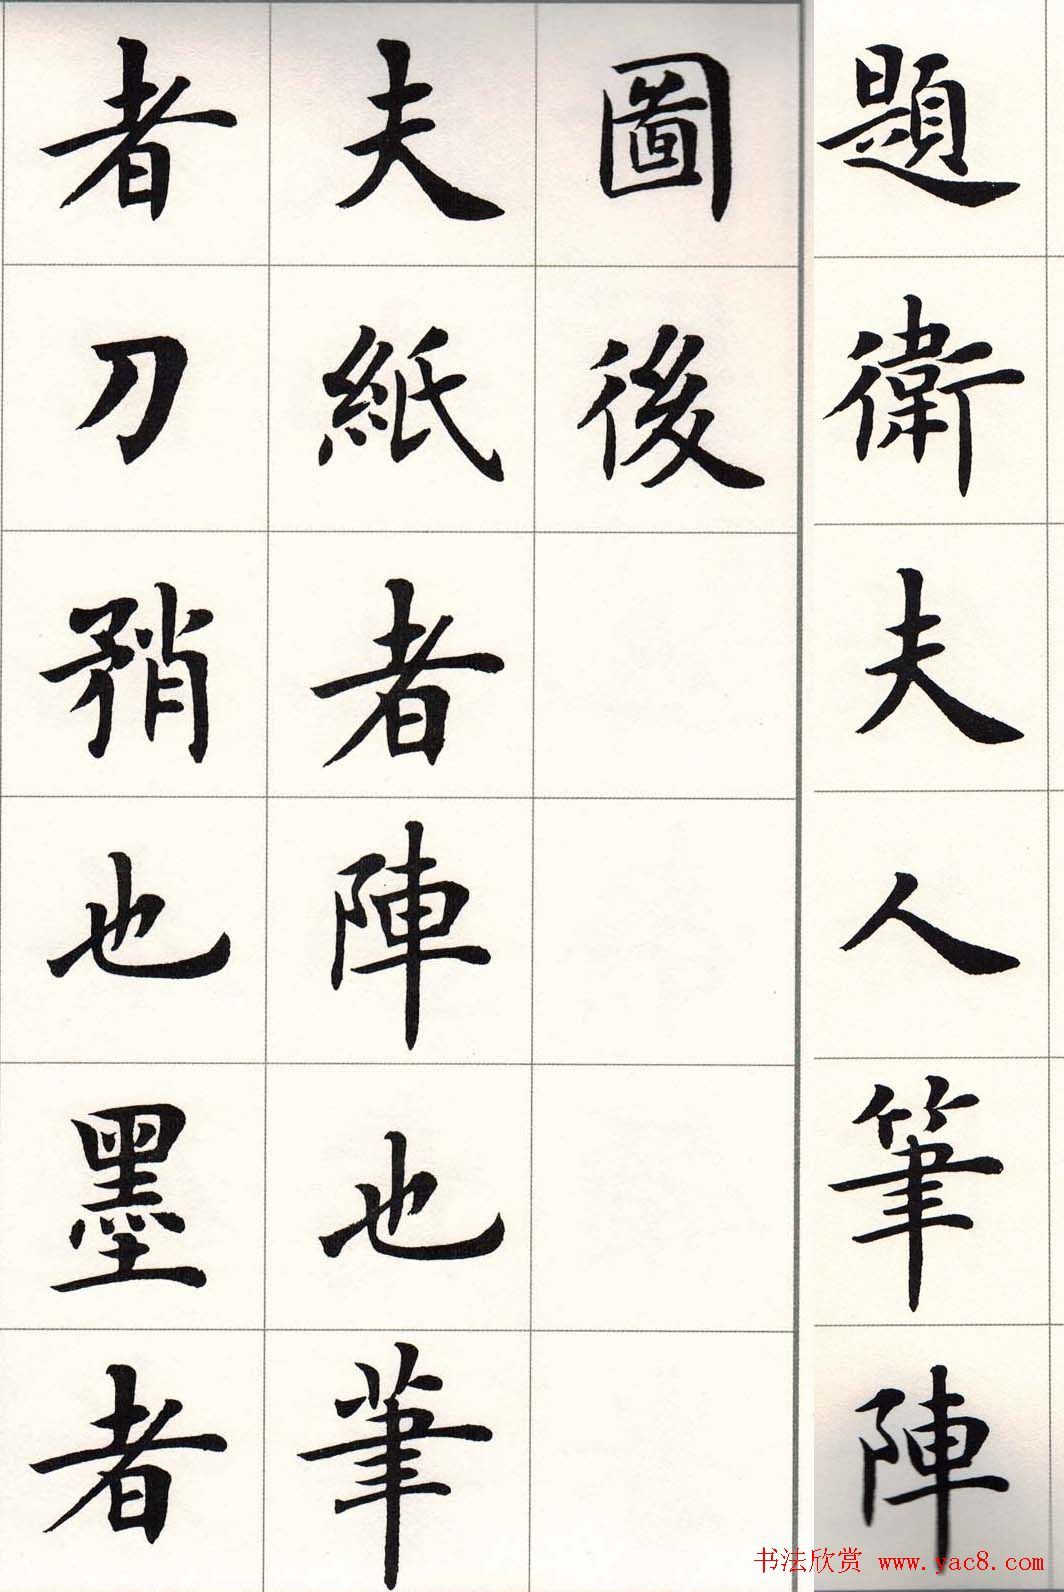 題衛夫人筆陣
圖後
夫紙者陣也筆
者刀矟也墨者
书法欣赏 www.yac8.com